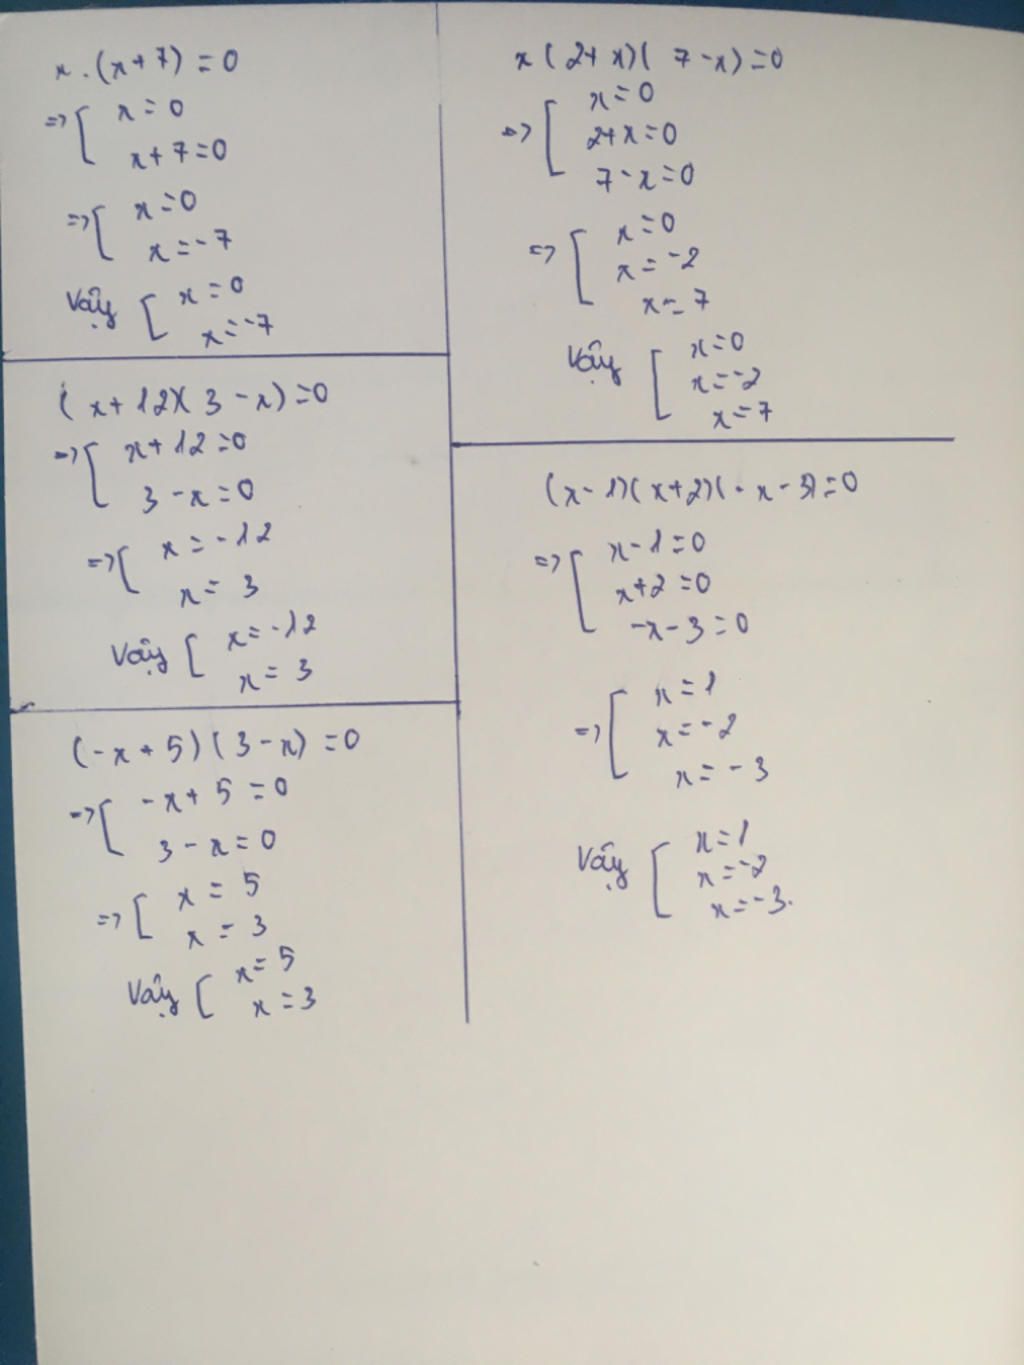 x . (x + 7) = 0
=> [ x = 0
x + 7 = 0
=> [ x = 0
x = -7
Vậy [ x = 0
x = -7
(x + 12)(3 - x) = 0
=> [ x + 12 = 0
3 - x = 0
=> [ x = -12
x = 3
Vậy [ x = -12
x = 3
(-x + 5)(3 - x) = 0
=> [ -x + 5 = 0
3 - x = 0
=> [ x = 5
x = 3
Vậy [ x = 5
x = 3
x(2+x)(7-x) = 0
=> [ x = 0
2+x = 0
7-x = 0
=> [ x = 0
x = -2
x = 7
Vậy [ x = 0
x = -2
x = 7
(x - 1)(x+2)(-x - 3) = 0
=> [ x - 1 = 0
x+2 = 0
-x - 3 = 0
=> [ x = 1
x = -2
x = -3
Vậy [ x = 1
x = -2
x = -3.